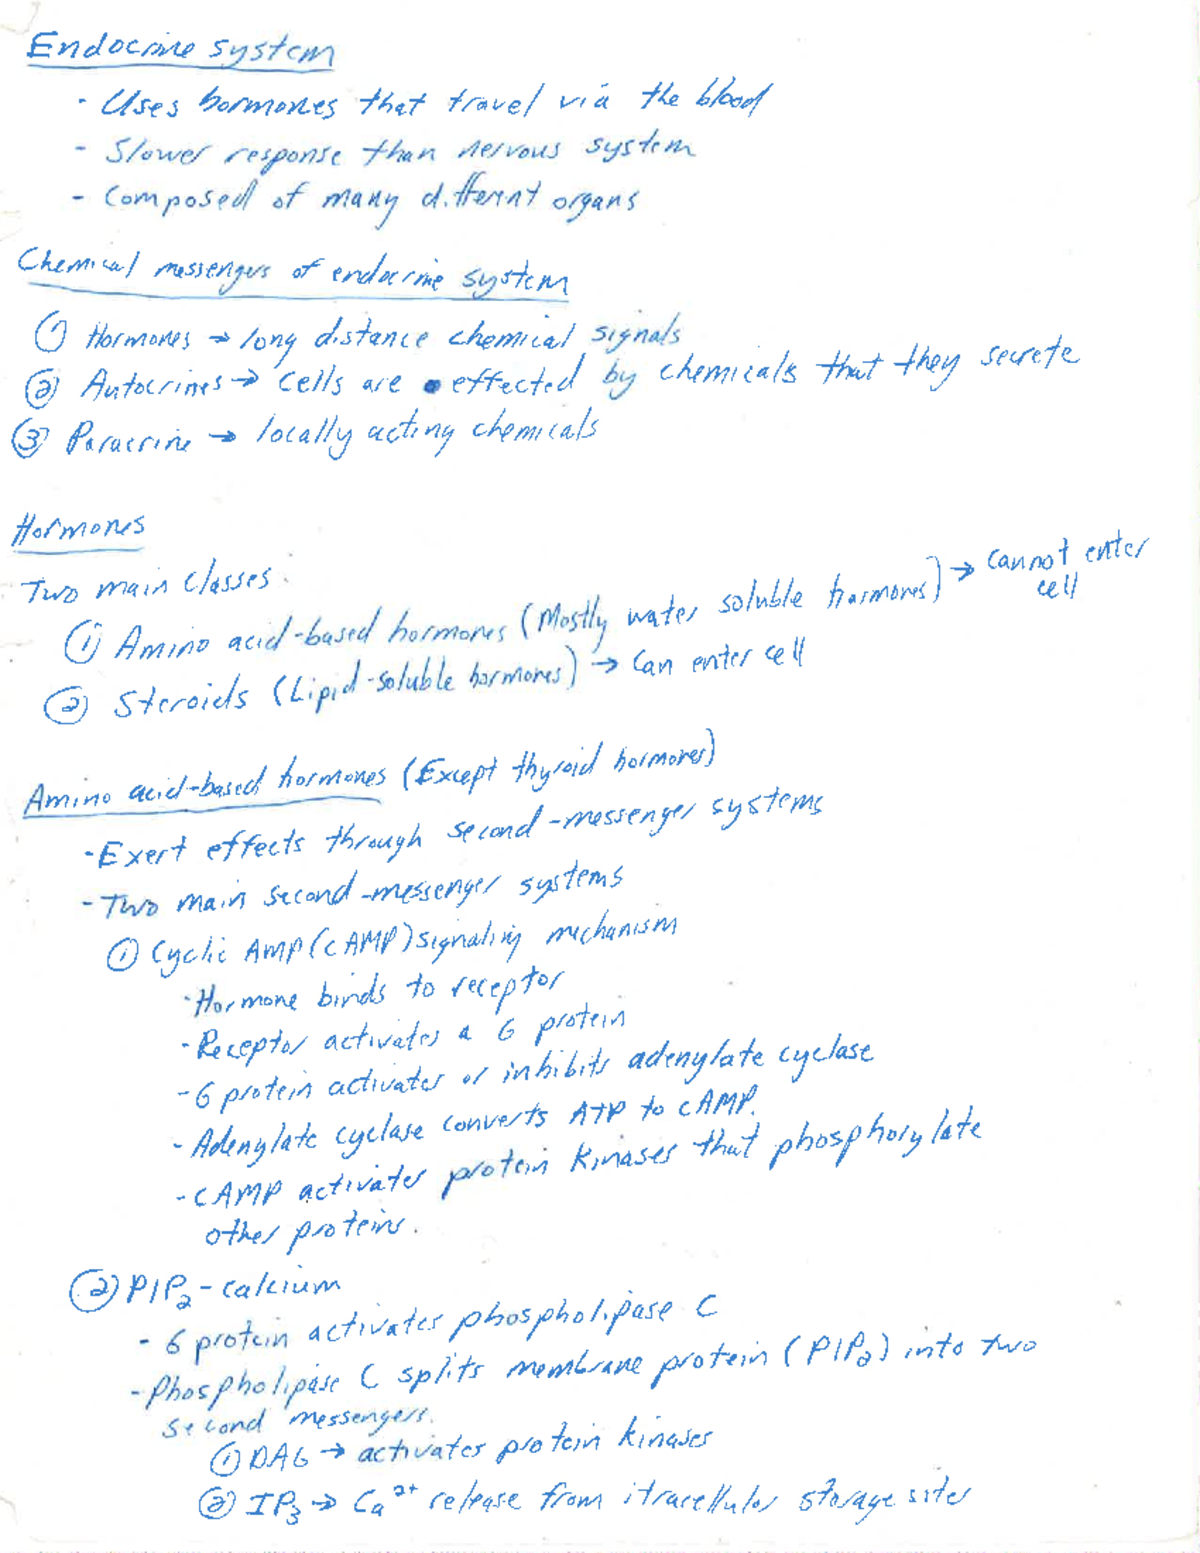 Endocrine system
- Uses hormones that travel via the blood
- Slower response than nervous system
- Composed of many different organs
Chemical messengers of endocrine system
① Hormones → long distance chemical signals
② Autocrines → cells are effected by chemicals that they secrete
③ Paracrine → locally acting chemicals
Hormones
Two main classes:
① Amino acid-based hormones (Mostly water soluble hormones) → cannot enter cell
② Steroids (Lipid-soluble hormones) → Can enter cell
Amino acid-based hormones (Except thyroid hormones)
- Exert effects through second-messenger systems
- Two main second-messenger systems
① Cyclic AMP (cAMP) signaling mechanism
- Hormone binds to receptor
- Receptor activates a G protein
- G protein activates or inhibits adenylate cyclase
- Adenylate cyclase converts ATP to cAMP.
- cAMP activates protein kinases that phosphorylate
other proteins.
② PIP₂-calcium
- G protein activates phospholipase C
- Phospholipase C splits membrane protein (PIP₂) into two
second messengers.
① DAG → activates protein kinases
② IP₃ → Ca²⁺ release from itracellular storage sites